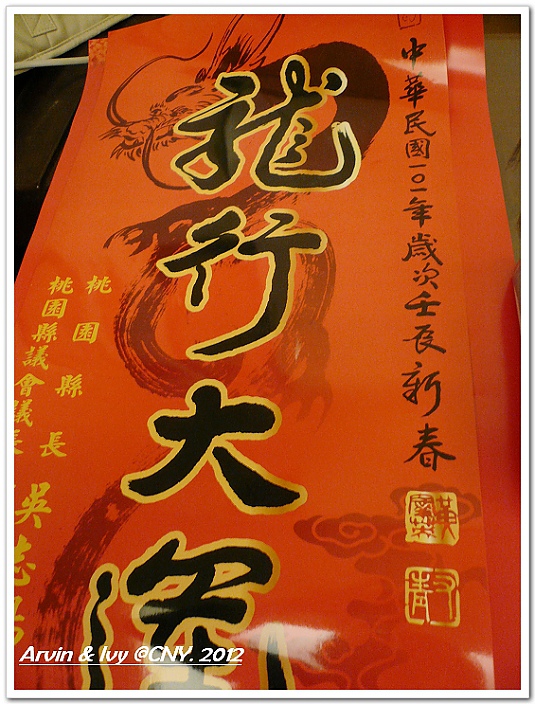 中華民國一〇一年歲次壬辰新春
龍行大運
桃園縣長
桃園縣議會議長
吳志
Arvin & Ivy @CNY. 2012